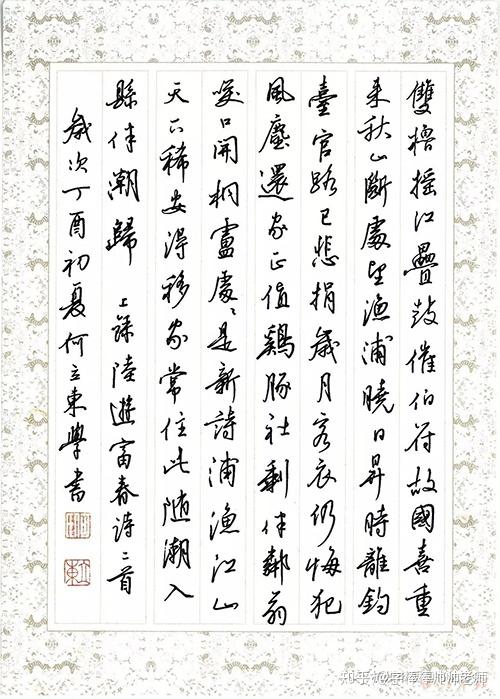 雙櫓搖江疊鼓催伯符故國喜重
来秋山斷處望漁浦曉日昇時離釣
臺官路已悲捐歲月客衣仍悔犯
風塵還家正值鷄豚社剩伴鄰翁
笑口開桐廬處々是新詩浦漁江山
天下稀安得移家常住此隨潮入
縣伴潮歸 上錄陸遊富春詩二首
歲次丁酉初夏何立東學書
立東
知乎 @字棒棒帅帅老师